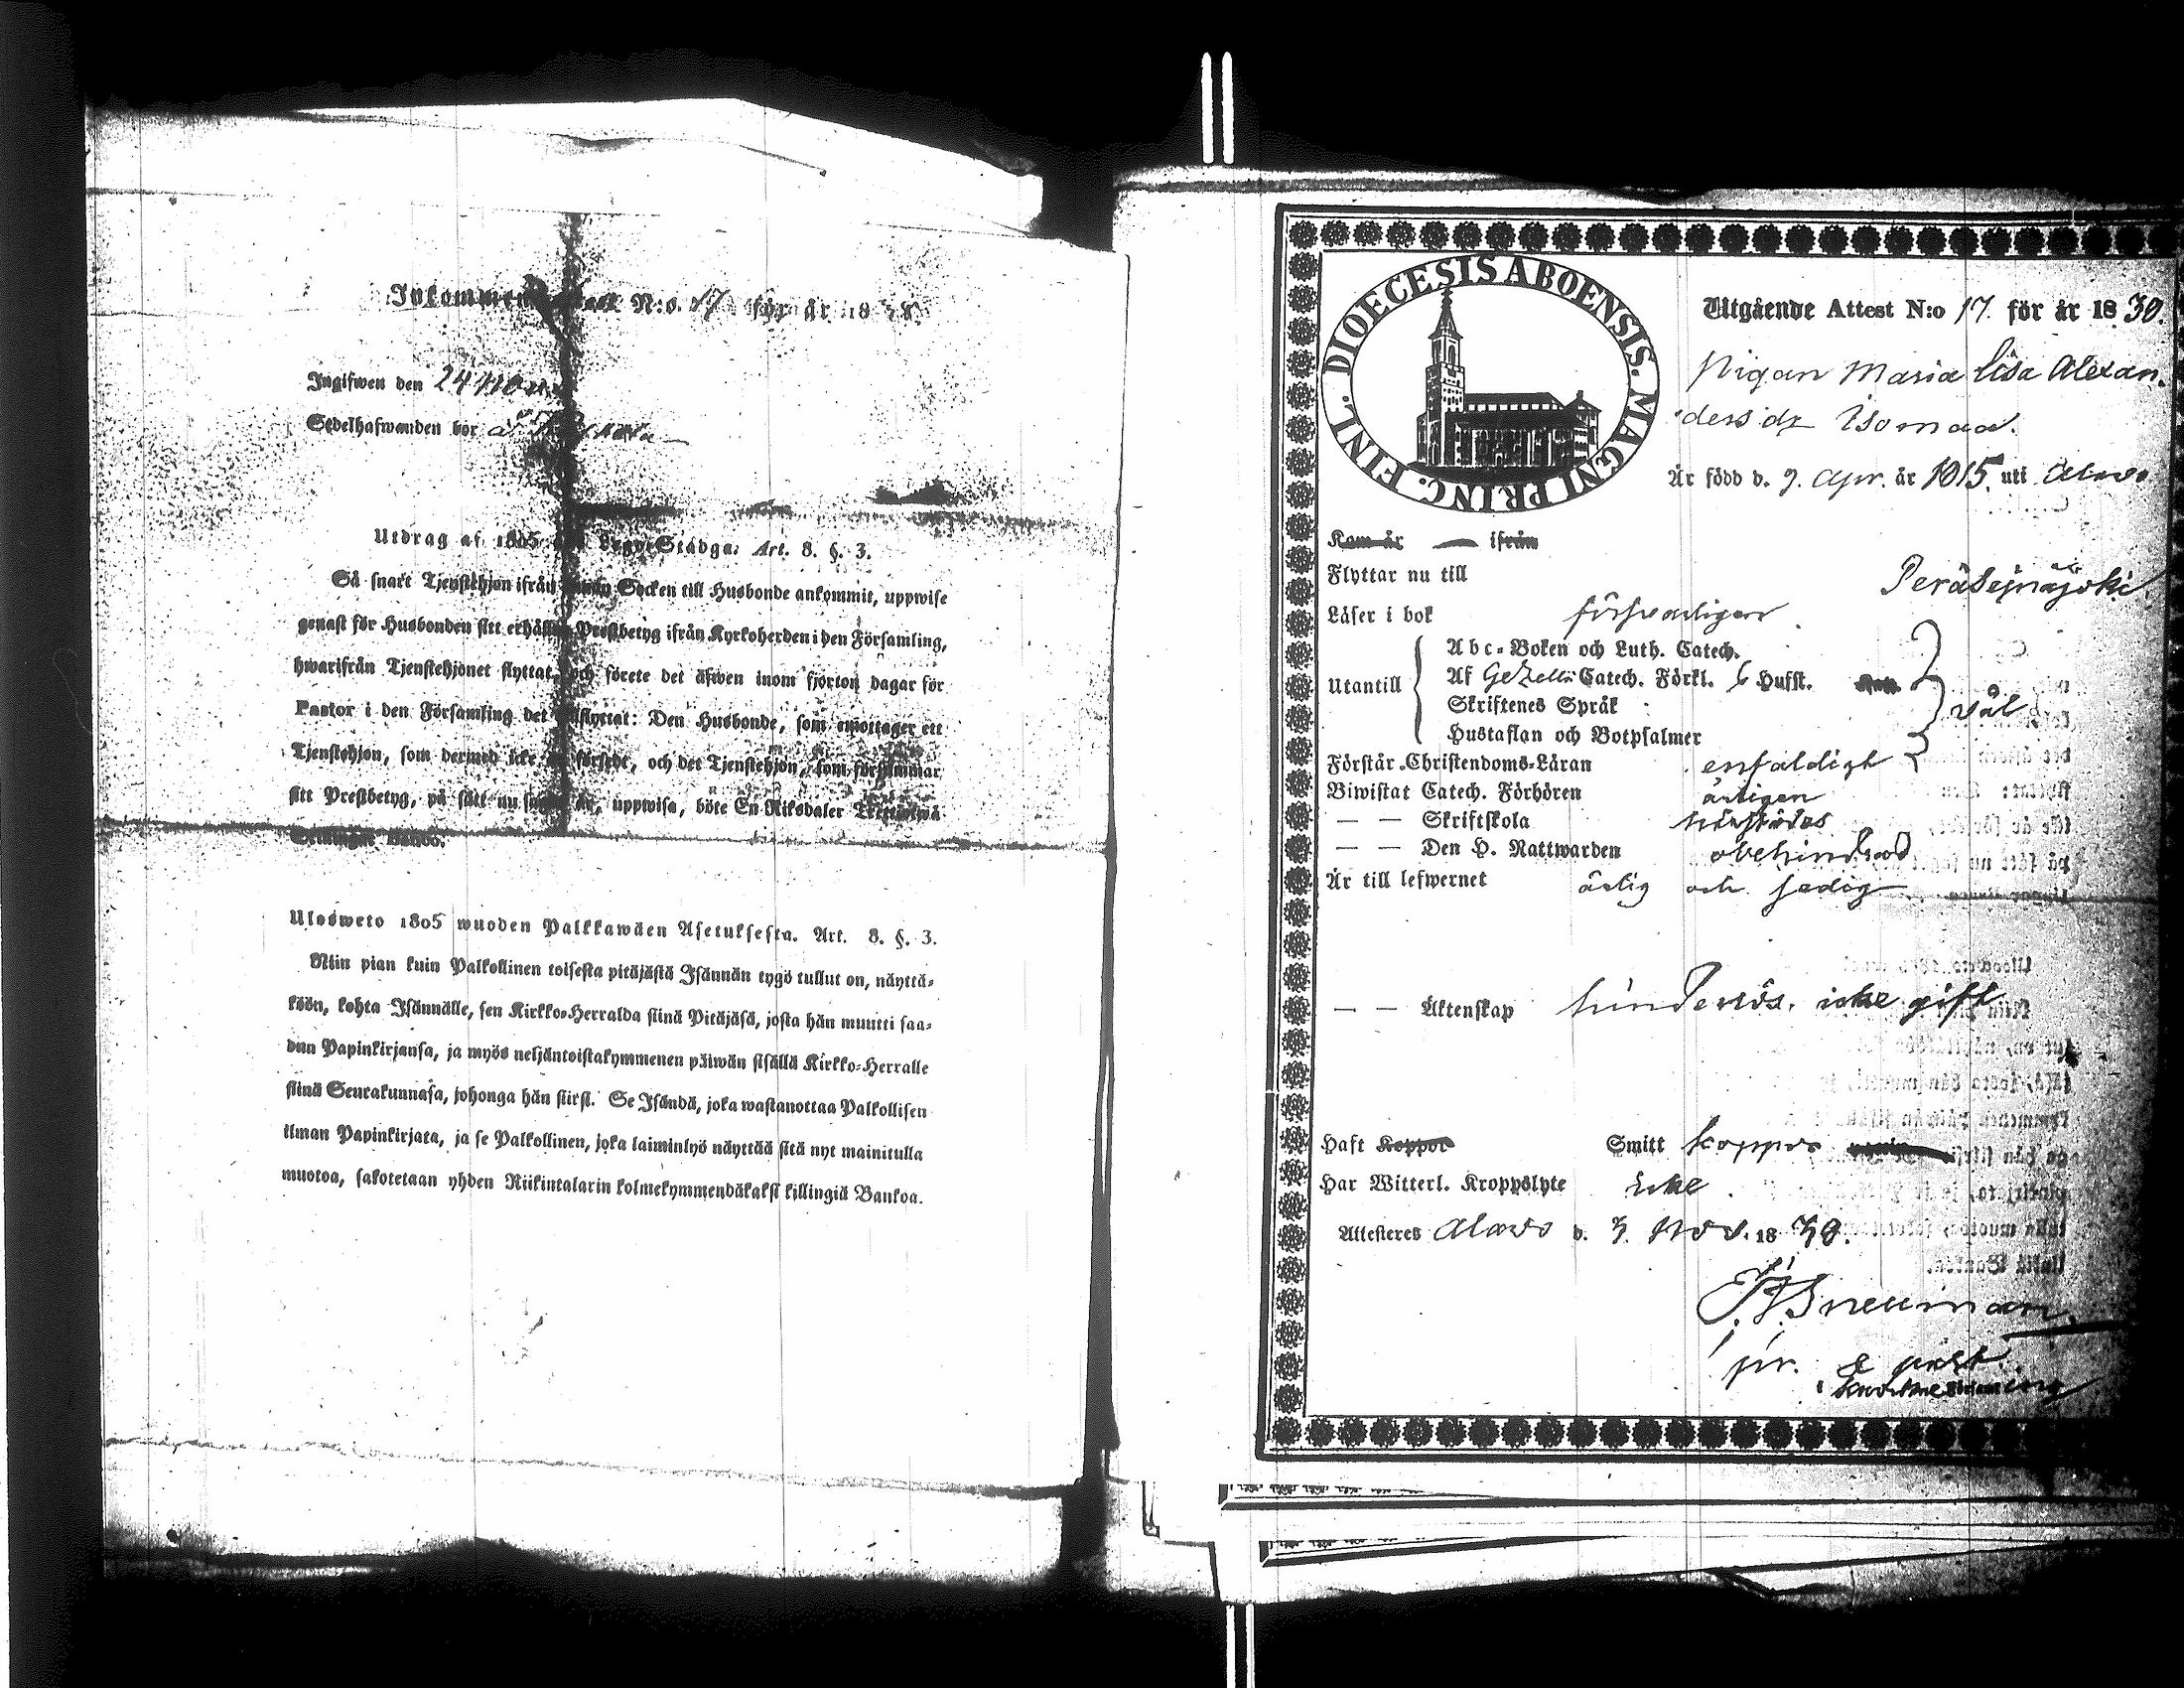 Inkommen Attest N:o 17 för år 18
Ingifwen den 24
Sedelhafwanden bor å
Utdrag af 1805 Lego-Stadga. Art. 8. §. 3.
Så snart Tjenstehjon ifrån annan Socken till Husbonde ankommit, uppwise
genast för Husbonden sitt erhållna Prestbetyg ifrån Kyrkoherden i den Församling,
hwarifrån Tjenstehjonet flyttat, och förete det äfwen inom fjorton dagar för
Pastor i den Församling det tillflyttat: Den Husbonde, som emottager ett
Tjenstehjon, som dermed icke är försedt, och det Tjenstehjon, som försummar
sitt Prestbetyg, på sätt nu sagdt är, uppwisa, böte En Riksdaler Trettiotwå
Skillingar Banco.
Ulosweto 1805 wuoden Palkkawäen Asetuksesta. Art. 8. §. 3.
Niin pian kuin Palkollinen toisesta pitäjästä Isännän tygö tullut on, näyttä-
köön, kohta Isännälle, sen Kirkko-Herralda siinä Pitäjäsä, josta hän muutti saa-
dun Papinkirjansa, ja myös neljäntoistakymmenen päiwän sisällä Kirkko-Herralle
siinä Seurakunnasa, johonga hän siirsi. Se Isändä, joka wastanottaa Palkollisen
ilman Papinkirjata, ja se Palkollinen, joka laiminlyö näyttää sitä nyt mainitulla
muotoa, sakotetaan yhden Riikintalarin kolmekymmendäkaksi killingiä Bankoa.
DIOECESIS ABOENSIS. MAGNI PRINC. FINL.
Utgående Attest N:o 17. för år 1830.
Pigan Maria Lisa Alexan-
dersdr Isomaa.
Är född d. 9. Apr. år 1815. uti Alavo
Kom år — ifrån
Flyttar nu till Peräseinäjoki
Läser i bok försvarligen
Utantill
Abc-Boken och Luth. Catech.
Af Gezelii Catech. Förkl. Husst.
Skriftenes Språk
Hustaflan och Botpsalmer
väl
Förstår Christendoms-Läran enfaldigt
Biwistat Catech. Förhören årligen
— — Skriftskola
— — Den H. Nattwarden obehindrad
Är till lefwernet ärlig och sedig
— — Äktenskap hinderlös. icke gift
Haft Koppor Smitt koppor
Har Witterl. Kroppslyte Icke.
Attesteres Alavo d. 3. Nov. 1830.
Snellman
pr.